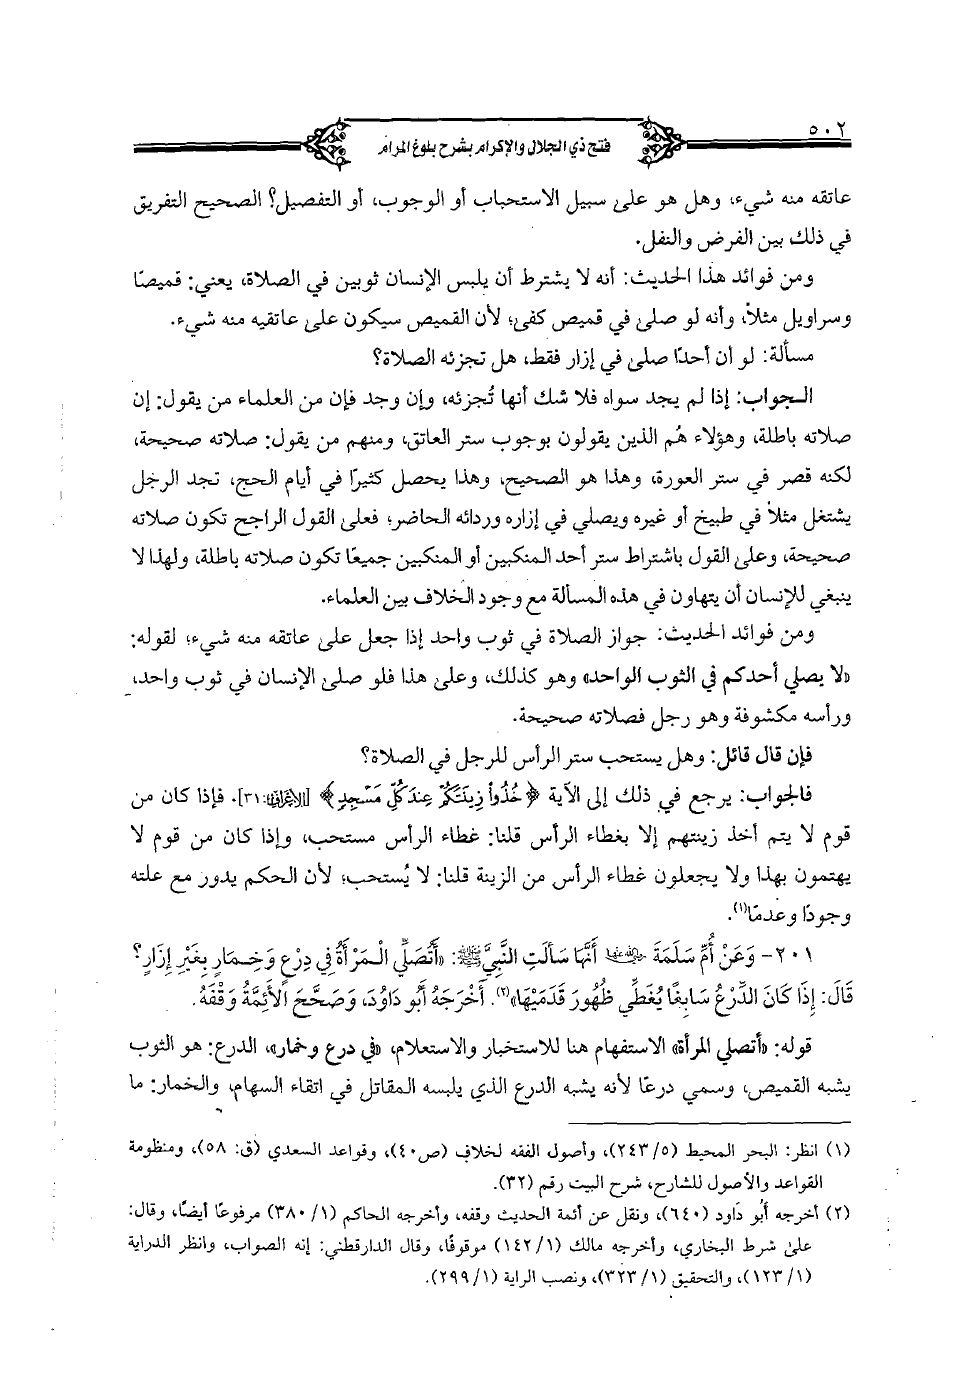 ٥٠٢
فتح ذي الجلال والإكرام بشرح بلوغ المرام
عاتقه منه شيء، وهل هو على سبيل الاستحباب أو الوجوب، أو التفصيل؟ الصحيح التفريق
في ذلك بين الفرض والنفل.
ومن فوائد هذا الحديث: أنه لا يشترط أن يلبس الإنسان ثوبين في الصلاة، يعني: قميصًا
وسراويل مثلاً، وأنه لو صلى في قميص كفى؛ لأن القميص سيكون على عاتقيه منه شيء.
مسألة: لو أن أحدًا صلى في إزار فقط، هل تجزئه الصلاة؟
الـجواب: إذا لم يجد سواه فلا شك أنها تُجزئه، وإن وجد فإن من العلماء من يقول: إن
صلاته باطلة، وهؤلاء هُم الذين يقولون بوجوب ستر العاتق، ومنهم من يقول: صلاته صحيحة،
لكنه قصر في ستر العورة، وهذا هو الصحيح، وهذا يحصل كثيرًا في أيام الحج، تجد الرجل
يشتغل مثلاً في طبيخ أو غيره ويصلي في إزاره وردائه الحاضر؛ فعلى القول الراجح تكون صلاته
صحيحة، وعلى القول باشتراط ستر أحد المنكبين أو المنكبين جميعًا تكون صلاته باطلة، ولهذا لا
ينبغي للإنسان أن يتهاون في هذه المسألة مع وجود الخلاف بين العلماء.
ومن فوائد الحديث: جواز الصلاة في ثوب واحد إذا جعل على عاتقه منه شيء؛ لقوله:
«لا يصلي أحدكم في الثوب الواحد» وهو كذلك، وعلى هذا فلو صلى الإنسان في ثوب واحد،
ورأسه مكشوفة وهو رجل فصلاته صحيحة.
فإن قال قائل: وهل يستحب ستر الرأس للرجل في الصلاة؟
فالجواب: يرجع في ذلك إلى الآية ﴿خُذُوا زِينَتَكُمْ عِندَ كُلِّ مَسْجِدٍ﴾ [الأعراف: ٣١]. فإذا كان من
قوم لا يتم أخذ زينتهم إلا بغطاء الرأس قلنا: غطاء الرأس مستحب، وإذا كان من قوم لا
يهتمون بهذا ولا يجعلون غطاء الرأس من الزينة قلنا: لا يُستحب؛ لأن الحكم يدور مع علته
وجودًا وعدمًا(١).
٢٠١- وَعَنْ أُمِّ سَلَمَةَ رضي الله عنها أَنَّهَا سَأَلَتِ النَّبِيَّ ﷺ: «أَتُصَلِّي الْـمَرْأَةُ فِي دِرْعٍ وَخِـمَارٍ بِغَيْرِ إِزَارٍ؟
قَالَ: إِذَا كَانَ الدِّرْعُ سَابِغًا يُغَطِّي ظُهُورَ قَدَمَيْهَا»(٢). أَخْرَجَهُ أَبُو دَاوُدَ، وَصَحَّحَ الأَئِمَّةُ وَقْفَهُ.
قوله: «أتصلي المرأة» الاستفهام هنا للاستخبار والاستعلام، «في درع وخمار»، الدرع: هو الثوب
يشبه القميص، وسمي درعًا لأنه يشبه الدرع الذي يلبسه المقاتل في اتقاء السهام، والخمار: ما
(١) انظر: البحر المحيط (٥/ ٢٤٣)، وأصول الفقه لخلاف (ص٤٠)، وقواعد السعدي (ق: ٥٨)، ومنظومة
القواعد والأصول للشارح، شرح البيت رقم (٣٢).
(٢) أخرجه أبو داود (٦٤٠)، ونقل عن أئمة الحديث وقفه، وأخرجه الحاكم (١/ ٣٨٠) مرفوعًا أيضًا، وقال:
على شرط البخاري، وأخرجه مالك (١/ ١٤٢) موقوفًا، وقال الدارقطني: إنه الصواب، وانظر الدراية
(١/ ١٢٣)، والتحقيق (١/ ٣٢٣)، ونصب الراية (١/ ٢٩٩).